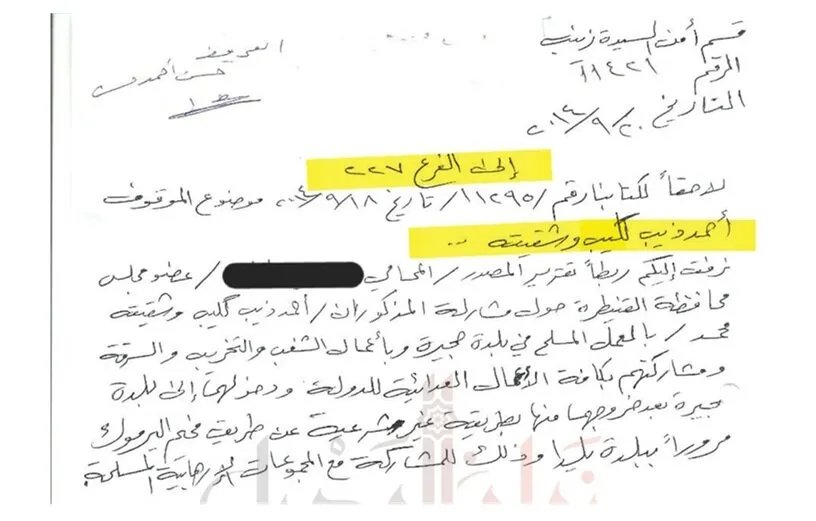 قسم أمن السيدة زينب
الرقم ١١٤٢١
التاريخ ٢٠١٤/٩/٢٠
إلى الفرع ٢٢٧
لاحقاً لكتابنا رقم /١١٢٩٥/ تاريخ ٢٠١٤/٩/١٨ موضوع الموقوف
أحمد ذيب كليب وشقيقه ..
نرفق إليكم ربطاً تقرير المصدر / المحامي / عضو مجلس
محافظة القنيطرة حول مشاركة المذكوران / أحمد ذيب كليب وشقيقه
محمد / بالعمل المسلح في بلدة حجيرة وبأعمال الشغب والتخريب والسرقة
ومشاركتهم بكافة الأعمال العدائية للدولة ودخولهما إلى بلدة
حجيرة بعد خروجهما منها بطريقة غير شرعية عن طريق مخيم اليرموك
مروراً ببلدة يلدا وذلك للمشاركة مع المجموعات الإرهابية المسلحة.